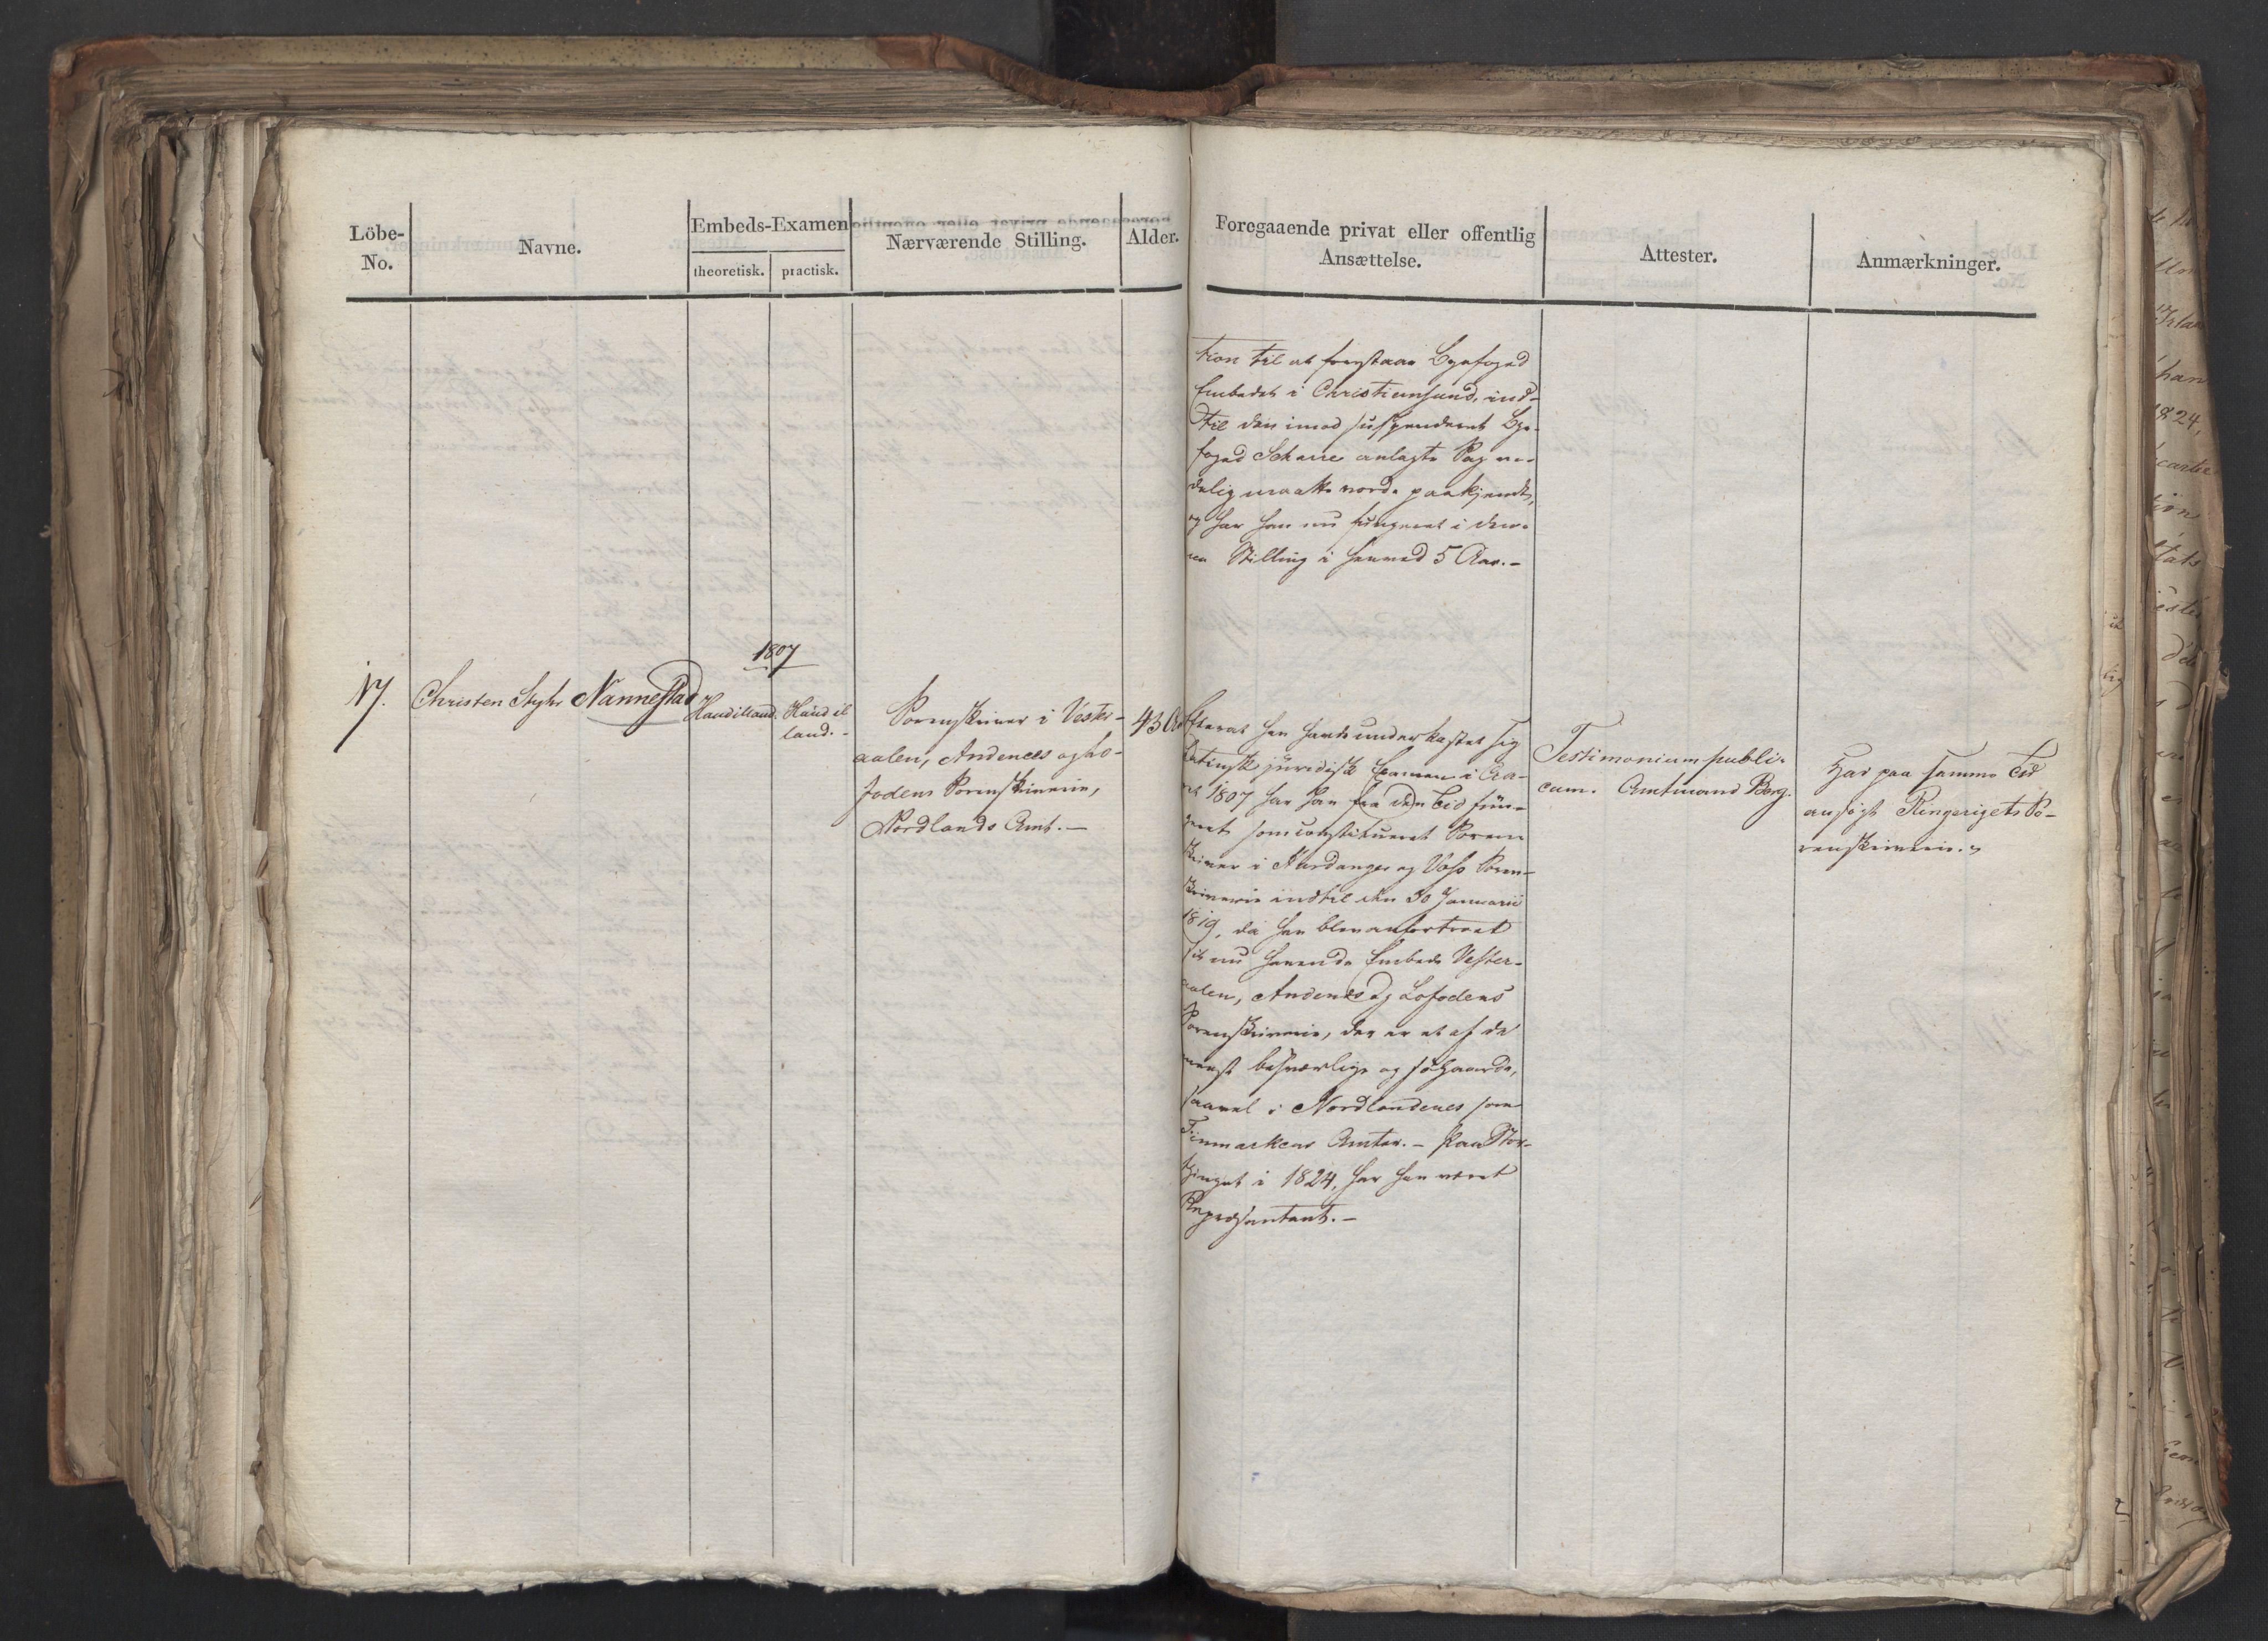 Löbe-
No.
Navne.
Embeds-Examen
theoretisk.
practisk.
Nærværende Stilling.
Alder.
Foregaaende privat eller offentlig
Ansættelse.
Attester.
Anmærkninger.
tion til at forestaae Byefoged
Embedet i Christiansund, ind-
til den imod suspenderet Bye-
foged anlagte Sag en-
delig maatte vorde paakjendt,
og har han nu fungeret i den-
ne Stilling i henved 5 Aar.-
17.
Christen Nannestad
1807
Haud illaud.
Haud il
laud.-
Sorenskriver i Vester-
aalen, Andenæs og Lo-
fodens Sorenskriverie,
Nordlands Amt.-
43 Aar
Efterat han havde underkastet sig
Latinsk juridisk Examen i Aa-
ret 1807 har han fra den Tid fun-
geret som constitueret Soren-
skriver i Hardanger og Voss Soren-
skriverie indtil den 30 Januarii
1819, da han blev anfortroet
sit nu havende Embede Vester-
aalen, Andenæs og Lofodens
Sorenskriverie, der er et af de
meest besværlige og
saavel i Nordlandenes som
Finmarkens Amter.- Paa Stor-
thinget i 1824, har han været
Repræsentant.-
Testimonium publi-
cum. Amtmand Berg.
Har paa samme Tid
ansøgt Ringerigets So-
renskriverie.